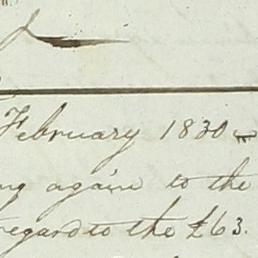 February 1830
ng again to the
regard to the £63.